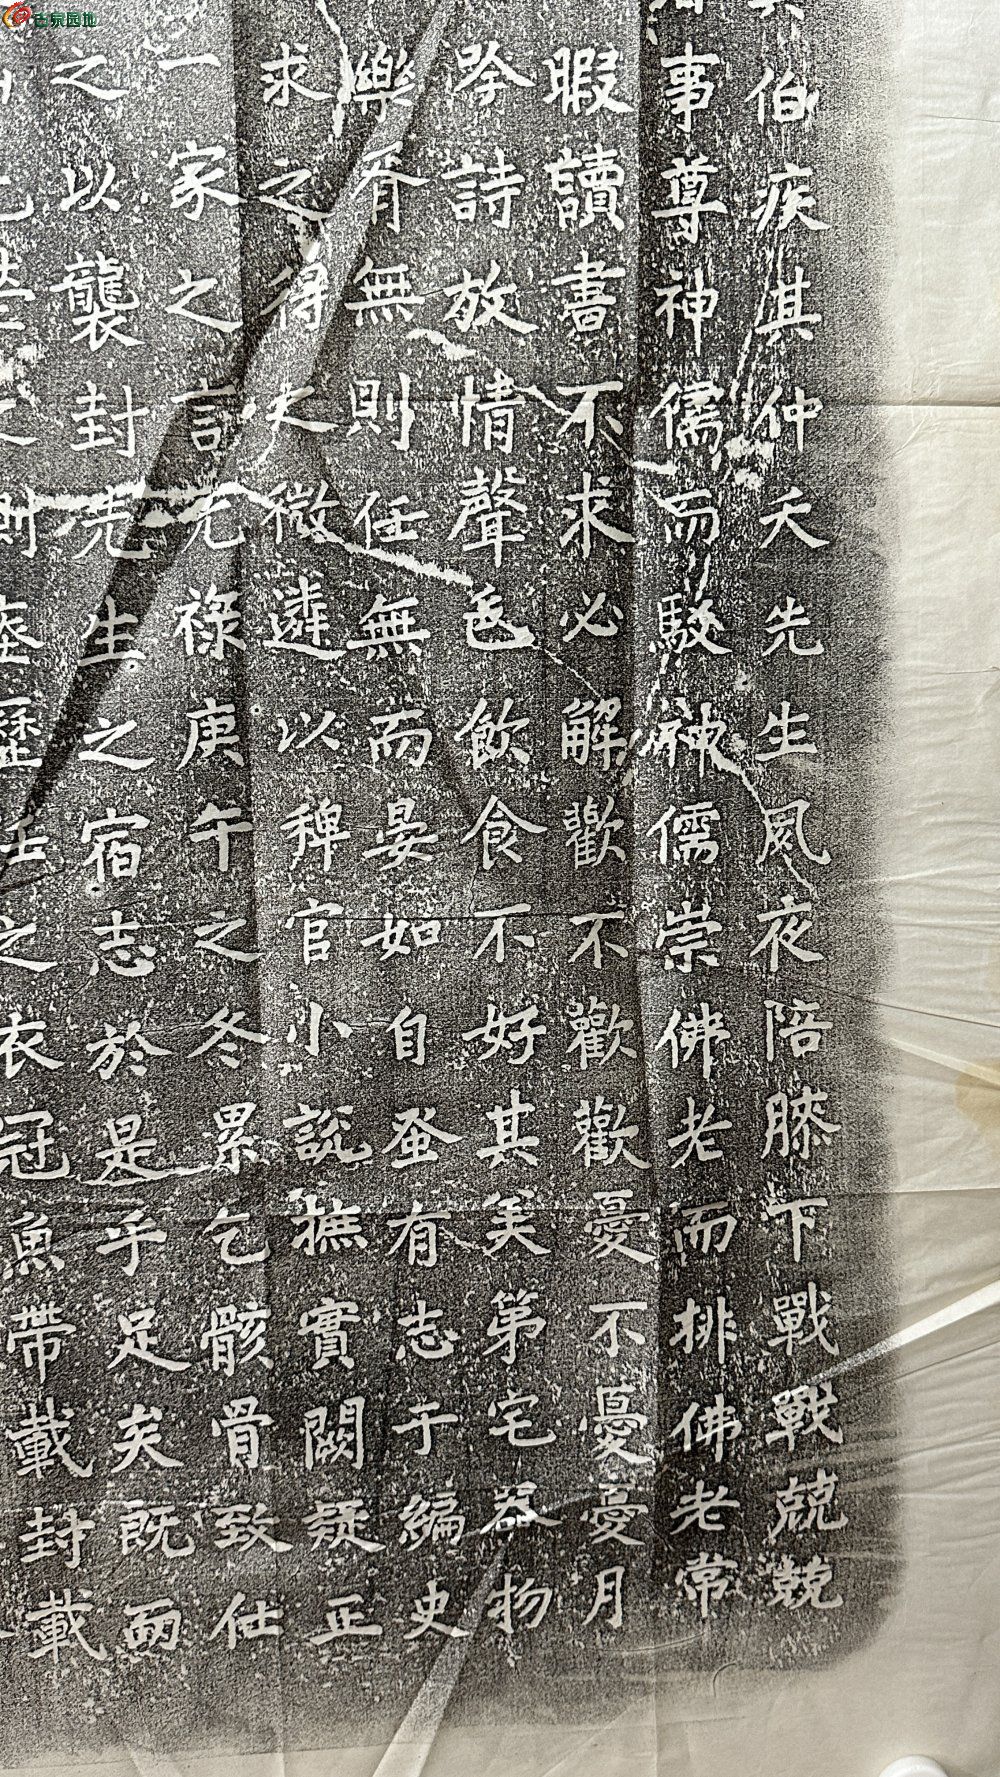 古泉园地
伯疾其仲夭先生夙夜陪膝下戰戰兢兢
事尊神儒而駁神儒崇佛老而排佛老常
暇讀書不求必解歡不歡歡憂不憂憂月
詩放情聲色飲食不好其美第宅器物
樂胥無則任無而晏如自蚤有志于編史
求之得失微遴以稗官小説撫實闕疑正
一家之言元祿庚午之冬累乞骸骨致仕
之以襲封先生之宿志於是乎足矣既而
之則壟歷任之衣冠魚帶載封載